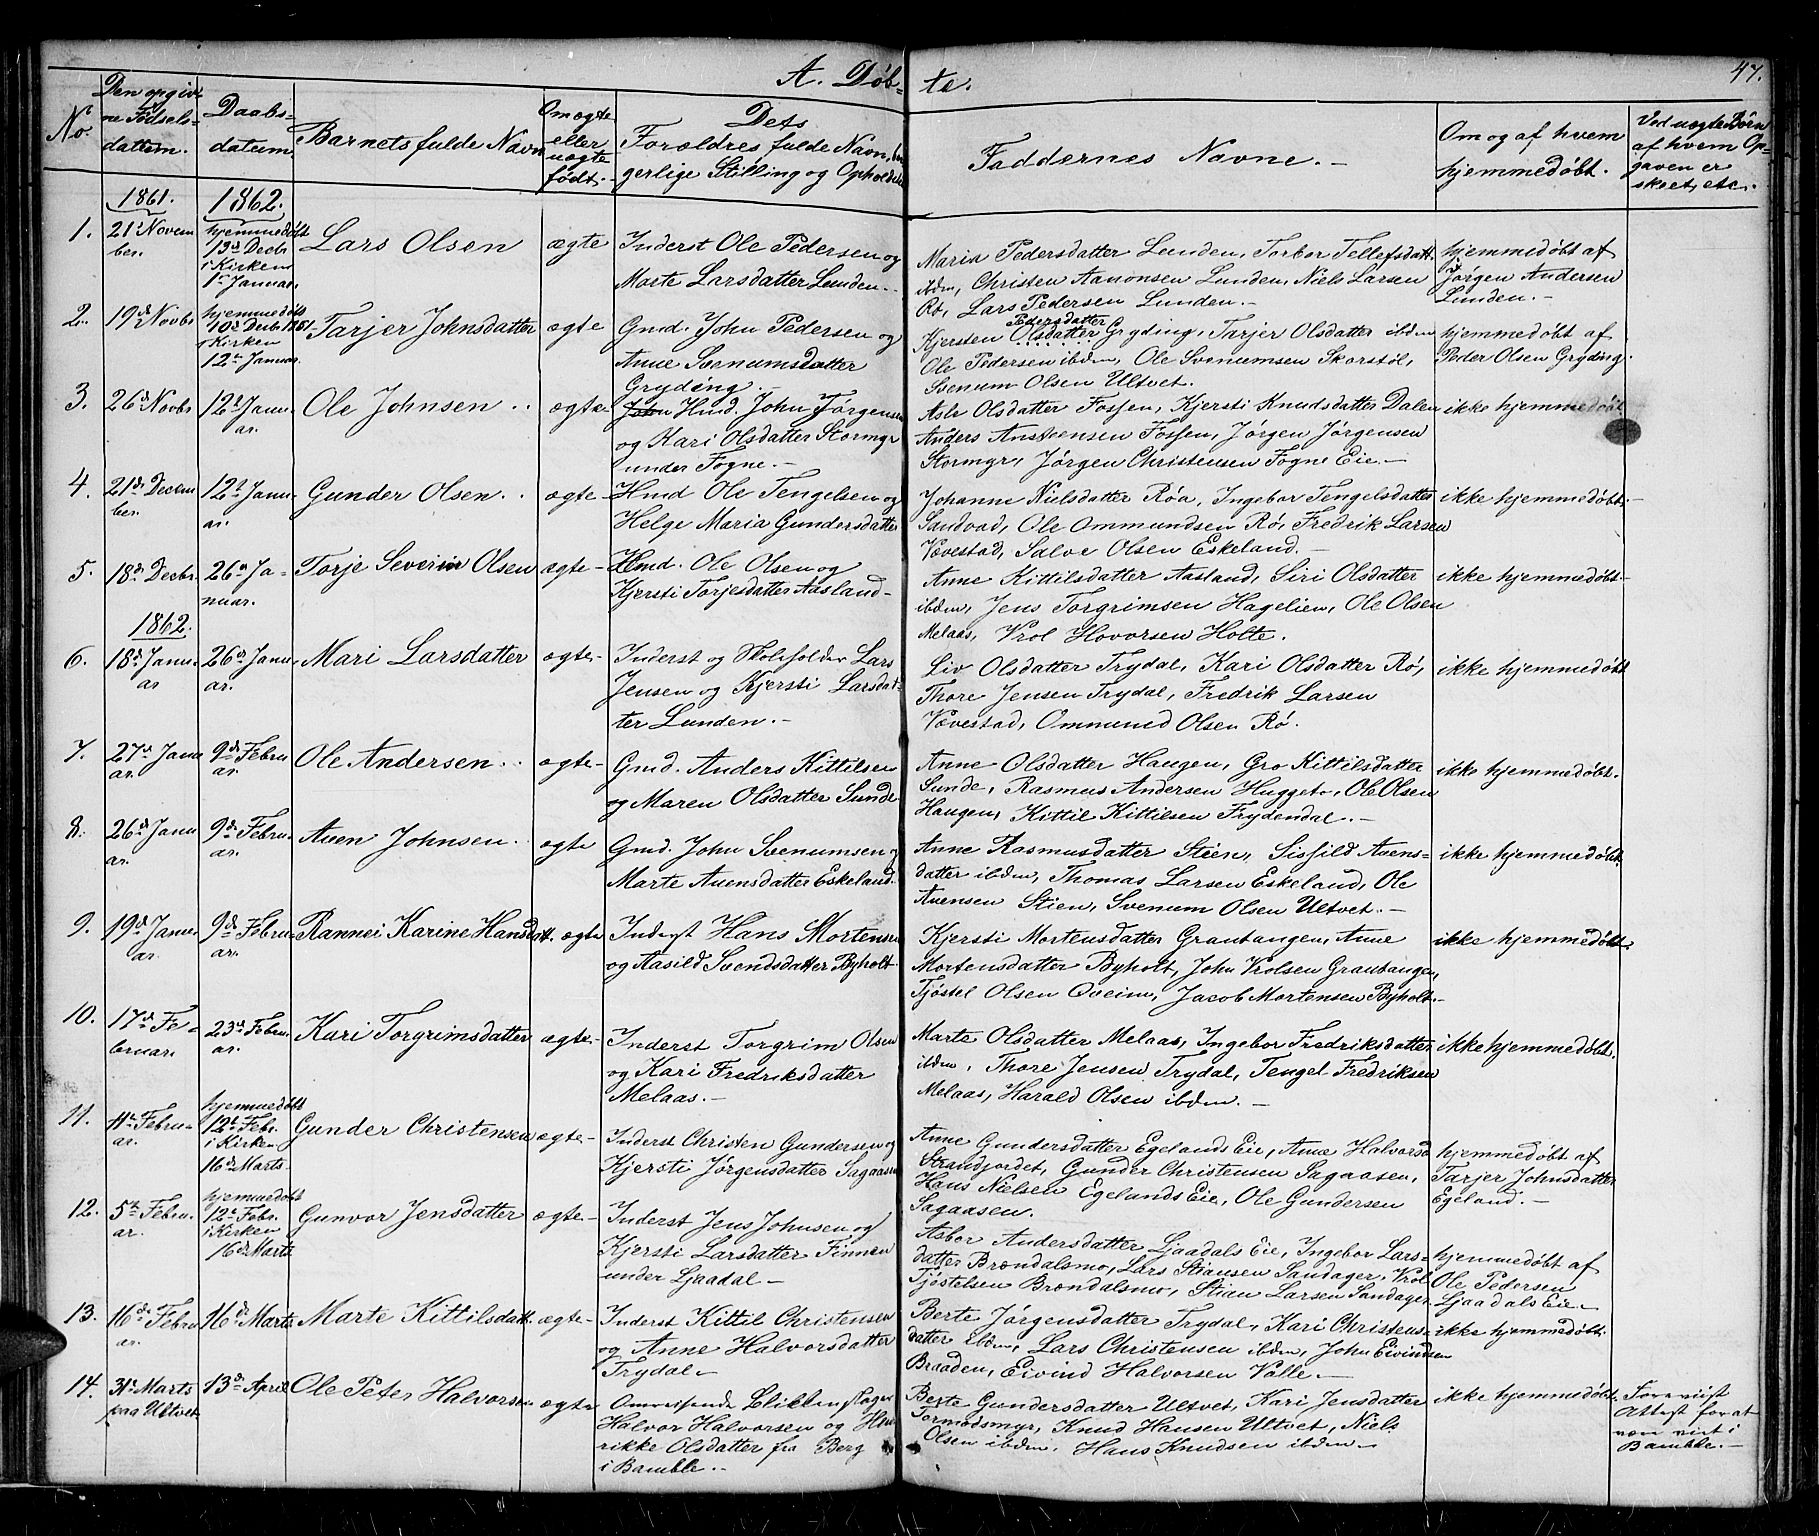 A. Døb-
te.
47.
No.
Den opgiv-
ne Fødsels-
dattum.
Daabs-
datum
Barnets fulde Navn
Om ægte
eller
uægte
født.
Dets
Forældres fulde Navn, bor-
gerlige Stilling og Opholds
Faddernes Navne.-
Om og af hvem
hjemmedøbt.
Ved uægte Børn
af hvem Op-
gaven er
skeet, etc.
1861.
1862.
1.
21de Novem
ber.
hjemmedøbt
13de Decbr
i Kirken
1ste Januar.
Lars Olsen
ægte
Inderst Ole Pedersen og
Marte Larsdatter Lunden.-
Maria Pedersdatter Lunden, Torbor Tellefsdatt.
ibdm, Christen Aanonsen Lunden, Niels Larsen
Rø, Lars Pedersen Lunden.-
hjemmedøbt af
Jørgen Andersen
Lunden.-
2.
19de Novbr
hjemmedøbt
10de Decbr 1861
i Kirken
12te Januar.
Tarjer Johnsdatter
ægte
Gmd. John Pedersen og
Anne Svenumsdatter
Gryding.-
Kjersten Olsdatter Gryding, Tarjer Olsdatter ibdm
Pedersdatter
Ole Pedersen ibdm, Ole Svenumsen Skorstøl,
Svenum Olsen Ultvet.
hjemmedøbt af
Peder Olsen Gryding.
3.
26de Novbr
12te Janu-
ar.
Ole Johnsen ..
ægte
John Hmd. John Jørgensen
og Kari Olsdatter Stormyr
under Fogne.-
Aslv Olsdatter Fosfen, Kjersti Knudsdatter Dalen
Anders Anstensen Fosfen, Jørgen Jørgensen
Stormyr, Jørgen Christensen Fogne Eie.-
ikke hjemmedøbt
4.
21de Decem
ber.
12te Janu-
ar.
Gunder Olsen ..
ægte-
Hmd Ole Tengelsen og
Helge Maria Gundersdatter
Johanne Nielsdatter Røa, Ingebor Tengelsdatter
Sandvad, Ole Ommundsen Rø, Fredrik Larsen
Vævestad, Salve Olsen Eskeland.-
ikke hjemmedøbt.-
5.
18de Decbr.
26de Ja-
nuar.
Torje Severin Olsen
ægte-
Hmd. Ole Olsen og
Kjersti Torjesdatter Aasland-
Anne Kittilsdatter Aasland, Siri Olsdatter
ibdm, Jens Torgrimsen Hagelien, Ole Olsen
Melaas, Vrol Hovorsen Holte.
ikke hjemmedøbt-
1862.
6.
18de Janu-
ar
26de Janu-
ar.
Mari Larsdatter
ægte-
Inderst og Skoleholder Lars
Jensen og Kjersti Larsdat-
ter Lunden.-
Liv Olsdatter Trydal, Kari Olsdatter Rø,
Thore Jensen Trydal, Fredrik Larsen
Vævestad, Ommund Olsen Rø.
ikke hjemmedøbt
7.
27de Janu
ar.
9de Febru
ar.
Ole Andersen..
ægte-
Gmd. Anders Kittilsen
og Maren Olsdatter Sunde
Anne Olsdatter Haugen, Gro Kittilsdatter
Sunde, Rasmus Andersen Huggeto, Ole Olsen
Haugen, Kittil Kittilsen Frydendal.-
ikke hjemmedøbt.
8.
26de Janu
ar.
9de Febru-
ar.
Auen Johnsen..
ægte
Gmd. John Svenumsen og
Marte Auensdatter Eskeland.
Anne Rasmusdatter Stien, Sissild Auens-
datter ibdm, Thomas Larsen Eskeland, Ole
Auensen Stien, Svenum Olsen Ultvet.-
ikke hjemmedøbt
9.
19de Janu-
ar.
9de Febru-
ar.
Rannei Karine Hansdatt.
ægte
Inderst Hans Mortensen
og Aasild Svendsdatter Byholt
Kjersti Mortensdatter Grautangen, Anne
Mortensdatter Byholt, John Vrolsen Grautangen,
Tjøstel Olsen Oveim, Jacob Mortensen Byholt.-
ikke hjemmedøbt.
10.
17de Fe-
bruar.
23de Febru-
ar.
Kari Torgrimsdatter
ægte-
Inderst Torgrim Olsen
og Kari Fredriksdatter
Melaas.-
Marte Olsdatter Melaas, Ingebor Fredriksdatter
ibdm, Thore Jensen Trydal, Tengel Fredriksen
Melaas, Harald Olsen ibdm.-
ikke hjemmedøbt.
11.
11te Febru-
ar.
hjemmedøbt
12te Febr.
i Kirken
16de Marts.
Gunder Christensen
ægte-
Inderst Christen Gundersen og
Kjersti Jørgensdatter Sagaasen
Anne Gundersdatter Egelands Eie, Anne Halvorsd
Strandjordet, Gunder Christensen Sagaasen,
Hans Nielsen Egelands Eie, Ole Gundersen
Sagaasen.
hjemmedøbt af
Tarjer Johnsdatter
Egeland.-
12.
5te Febru-
ar.
hjemmedøbt
12te Febr.
i Kirken
16de Marts
Gunvor Jensdatter
ægte-
Inderst Jens Johnsen og
Kjersti Larsdatter Finnen
under Ljaadal-
Asbor Andersdatter Ljaadals Eie, Ingebor Lars-
datter Brændalsmo, Lars Stiansen Sandager, Vrol
Tjøstelsen Brændalsmo, Stian Larsen Sandager
hjemmedøbt af
Ole Pedersen
Ljaadals Eie-
13.
16de Febru
ar.
16de Marts
Marte Kittilsdatt.
ægte-
Inderst Kittil Christensen
og Anne Halvorsdatter
Trydal-
Berte Jørgensdatter Trydal, Kari Christens-
datter ibdm, Lars Christensen ibdm, John Eivindsen
Braaden, Eivind Halvorsen Valle.-
ikke hjemmedøbt.
14.
31te Marts
paa Ultvet
13de April
Ole Peter Halvorsen
ægte
Omreisende Blikkenslager
Halvor Halvorsen og Hen
rikke Olsdatter fra Berg
i Bamble.-
Berte Gundersdatter Ultvet, Kari Jensdatter
Tormodsmyr, Knud Hansen Ultvet, Niels
Olsen ibdm, Hans Knudsen ibdm-
ikke hjemmedøbt.
Foreviist
Attest for at
være viet i
Bamble.-